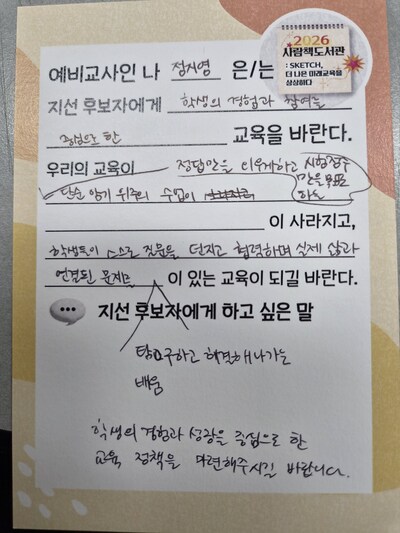 2026
사람책도서관
: SKETCH,
더 나은 미래교육을
상상하다
예비교사인 나 정지영 은/는
지선 후보자에게 학생의 경험과 참여를
중심으로 한 교육을 바란다.
우리의 교육이 정답만을 외우게하고 시험점수
만을 목표
하는
단순 암기 위주의 수업이
이 사라지고,
학생들이 스스로 질문을 던지고 협력하며 실제 삶과
연결된 문제를 이 있는 교육이 되길 바란다.
지선 후보자에게 하고 싶은 말
탐구하고 해결해나가는
배움
학생의 경험과 성장을 중심으로 한
교육 정책을 마련해주시길 바랍니다.